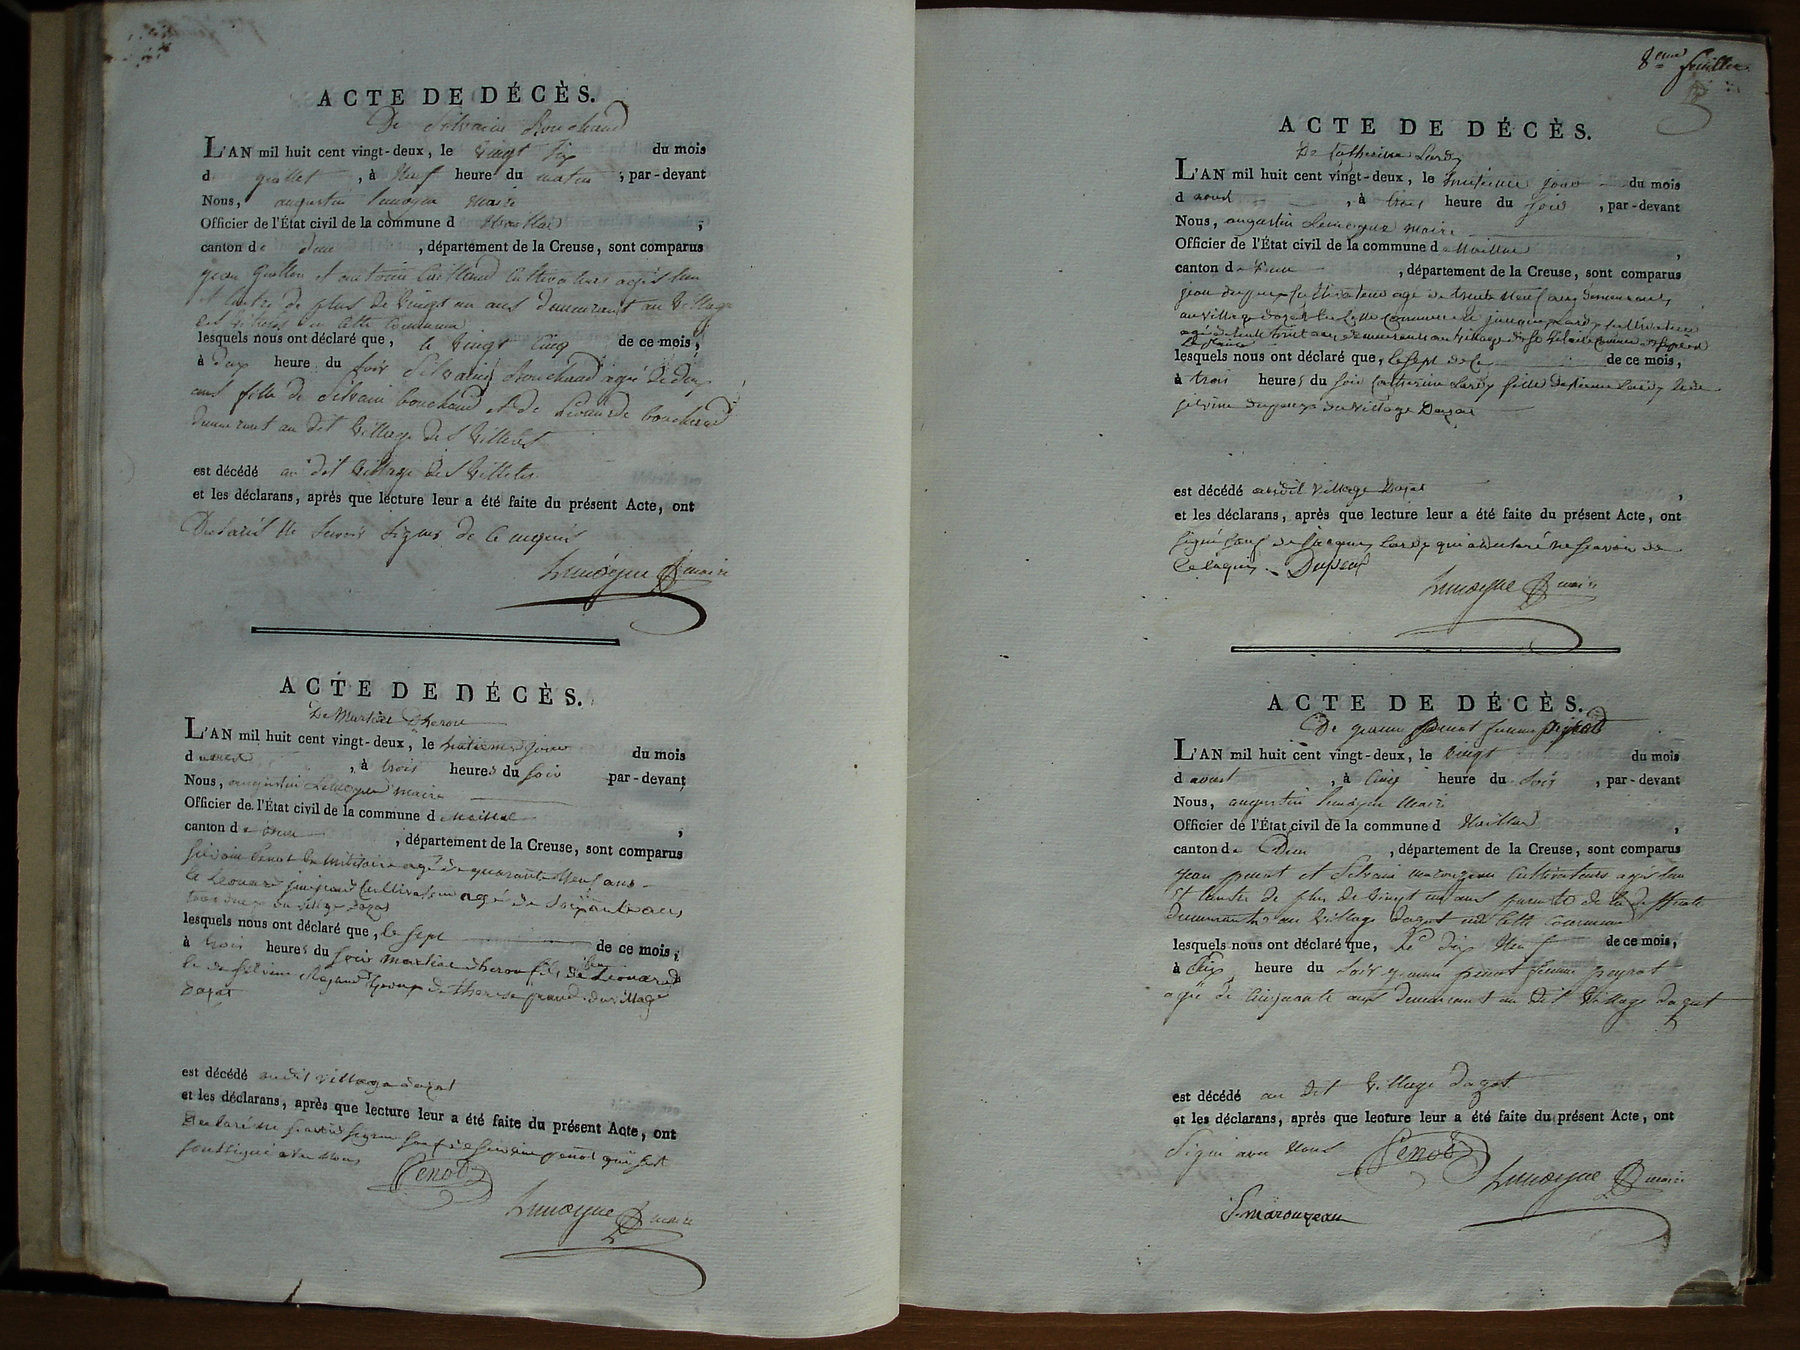 ACTE DE DÉCÈS.
De Silvain Bouchaud
L'AN mil huit cent vingt-deux, le vingt six du mois
d juillet, à Neuf heure du matin, par-devant
Nous, augustin Lemoyne maire
Officier de l'État civil de la commune d Maillat,
canton de dun, département de la Creuse, sont comparus
et antoine cultivateurs agés l'un
et l'autre de plus de vingt un ans demeurant au village
des villetes en cette commune
lesquels nous ont déclaré que, le vingt cinq de ce mois,
à dix heure du soir Silvain Bouchaud agé de dix
ans fils de Silvain bouchaud et de Bouchaud
demeurant au dit village des villetes
est décédé au dit village des villetes
et les déclarans, après que lecture leur a été faite du présent Acte, ont
Déclaré ne savoir signer de ce enquis
Lemoyne maire
ACTE DE DÉCÈS.
De Martial Dheron
L'AN mil huit cent vingt-deux, le huitieme jour du mois
d aoust, à trois heures du soir par-devant
Nous, augustin Lemoyne maire
Officier de l'État civil de la commune d Maillat,
canton de Dun, département de la Creuse, sont comparus
penot militaire agé de quarante Neuf ans
et Leonard cultivateur agé de soixante ans
tous deux du village Dazat
lesquels nous ont déclaré que, le sept de ce mois,
à trois heures du soir martial dheron fils de Léonard
et de silvine Epoux de therese du village
Dazat
est décédé audit village dazat
et les déclarans, après que lecture leur a été faite du présent Acte, ont
declaré ne savoir signer sauf penot qui s'est
soussigné avec Nous
Penot
Lemoyne maire
8eme feuillet
ACTE DE DÉCÈS.
De Catherine Lardy
L'AN mil huit cent vingt-deux, le huitieme jour du mois
d aoust, à trois heure du jour, par-devant
Nous, augustin Lemoyne maire
Officier de l'État civil de la commune d Maillat,
canton de Dun, département de la Creuse, sont comparus
jean cultivateur agé de trente Neuf ans demeurant
au village dazat en Cette Commune et jacques Lardy cultivateur
agé de trente huit ans demeurant au village de St hilaire
la plaine
lesquels nous ont déclaré que, le sept de ce de ce mois,
à trois heures du soir Catherine Lardy fille de Lardy et de
silvine du village Dazat
est décédé audit village Dazat,
et les déclarans, après que lecture leur a été faite du présent Acte, ont
signé sauf jacques Lardy qui a declaré ne savoir de
ce enquis.
Lemoyne maire
ACTE DE DÉCÈS.
De penot femme peyrot
L'AN mil huit cent vingt-deux, le vingt du mois
d aoust, à cinq heure du soir, par-devant
Nous, augustin Lemoyne Maire
Officier de l'État civil de la commune d Maillat,
canton de Dun, département de la Creuse, sont comparus
jean penot et Silvain marouzeau cultivateurs agés l'un
et l'autre de plus de vingt un ans parents de la deffunte
demeurants au village dazat en cette commune
lesquels nous ont déclaré que, Le dix Neuf de ce mois,
à six heure du soir penot femme peyrot
agée de cinquante ans demeurant au dit village dazat
est décédé au dit village dazat
et les déclarans, après que lecture leur a été faite du présent Acte, ont
signé avec Nous
Penot
Lemoyne maire
S. marouzeau